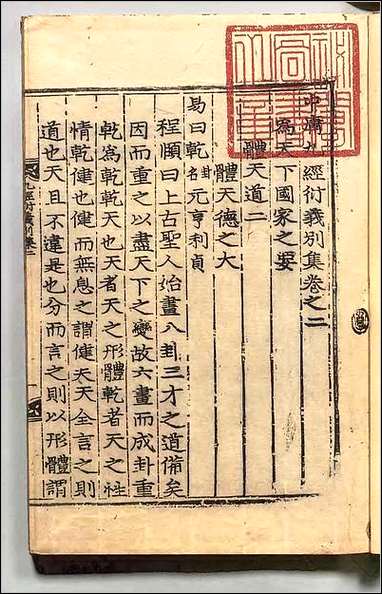 中庸九經衍義別集卷之二
爲天下國家之要
體天道二
體天德之大
易曰乾卦名元亨利貞
程頤曰上古聖人始畫八卦三才之道備矣
因而重之以盡天下之變故六畫而成卦重
乾爲乾乾天也天者天之形體乾者天之性
情乾健也健而無息之謂健夫天全言之則
道也天且不違是也分而言之則以形體謂